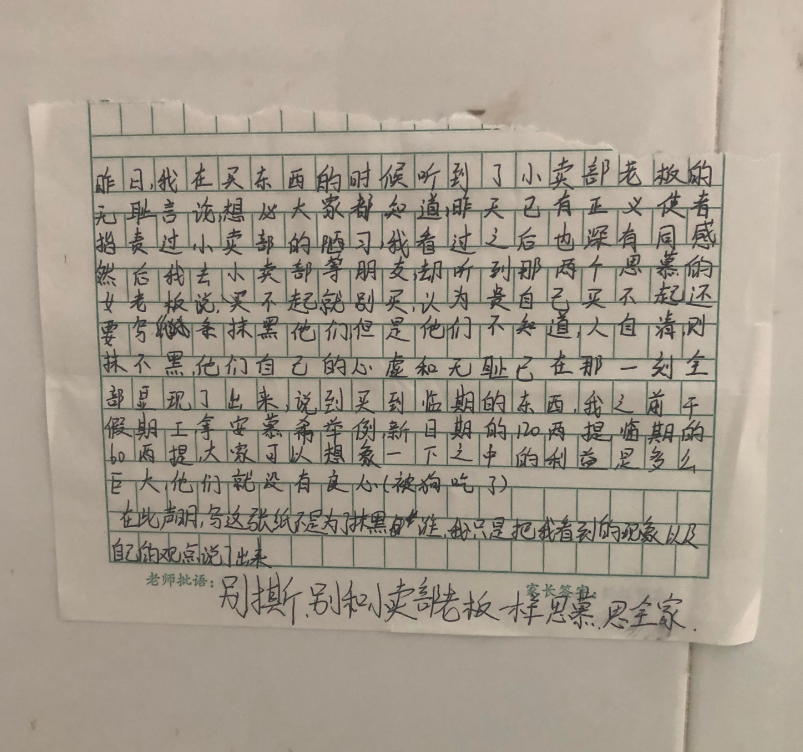 昨日,我在买东西的时候听到了小卖部老板的
无耻言论,想必大家都知道,昨天已有正义使者
指责过小卖部的陋习,我看过之后也深有同感
然后我去小卖部等朋友,却听到那两个思慕的
女老板说,买不起就别买,认为贵自己买不起还
要写纸条抹黑他们但是他们不知道,人自清,则
抹不黑,他们自己的心虚和无耻已在那一刻全
部显现了出来,说到买到临期的东西,我之前干
假期工拿安慕希举例新日期的120两提临期的
60两提,大家可以想象一下之中的利益是多么
巨大,他们就没有良心(被狗吃了)
在此声明,写这张纸不是为了抹黑谁,我只是把我看到的现象以及
自己的观点说了出来
老师批语: 家长签字:
别撕,别和小卖部老板一样思慕,思全家.